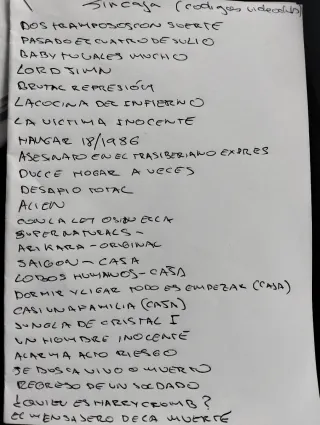 Sin caja (codigos videoclub)
DOS TRAMPOSOS CON SUERTE
PASADO EL CUATRO DE JULIO
BABY TU VALES MUCHO
LORD JIMN
BRUTAL REPRESIÓN
LA COCINA DEL INFIERNO
LA VICTIMA INOCENTE
HANGAR 18/1986
ASESNATO EN EL TRASIBERIANO EXPRES
DULCE HOGAR A VECES
DESAFIO TOTAL
ALIEN
CON LA LEY O SIN ELLA
SUPERNATURALS -
ARIKARA - ORIGINAL
SAIGON - CASA
LOBOS HUMANOS - CASA
DORMIR Y LIGAR TODO ES EMPEZAR (CASA)
CASI UNA FAMILIA (CASA)
JUNGLA DE CRISTAL I
UN HOMBRE INOCENTE
ALARMA ALTO RIESGO
SE BUSCA VIVO O MUERTO
REGRESO DE UN SOLDADO
¿QUIEN ES HARRY CROMB?
EL MENSAJERO DE LA MUERTE